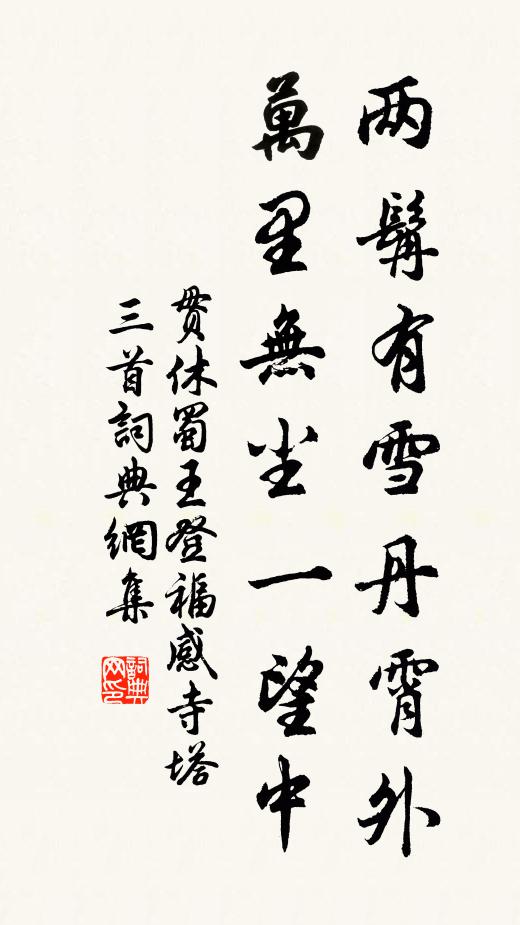 两鬢有雪丹霄外
萬里無尘一望中
貫休蜀王登福感寺塔
三首詞典網集
詞典网印